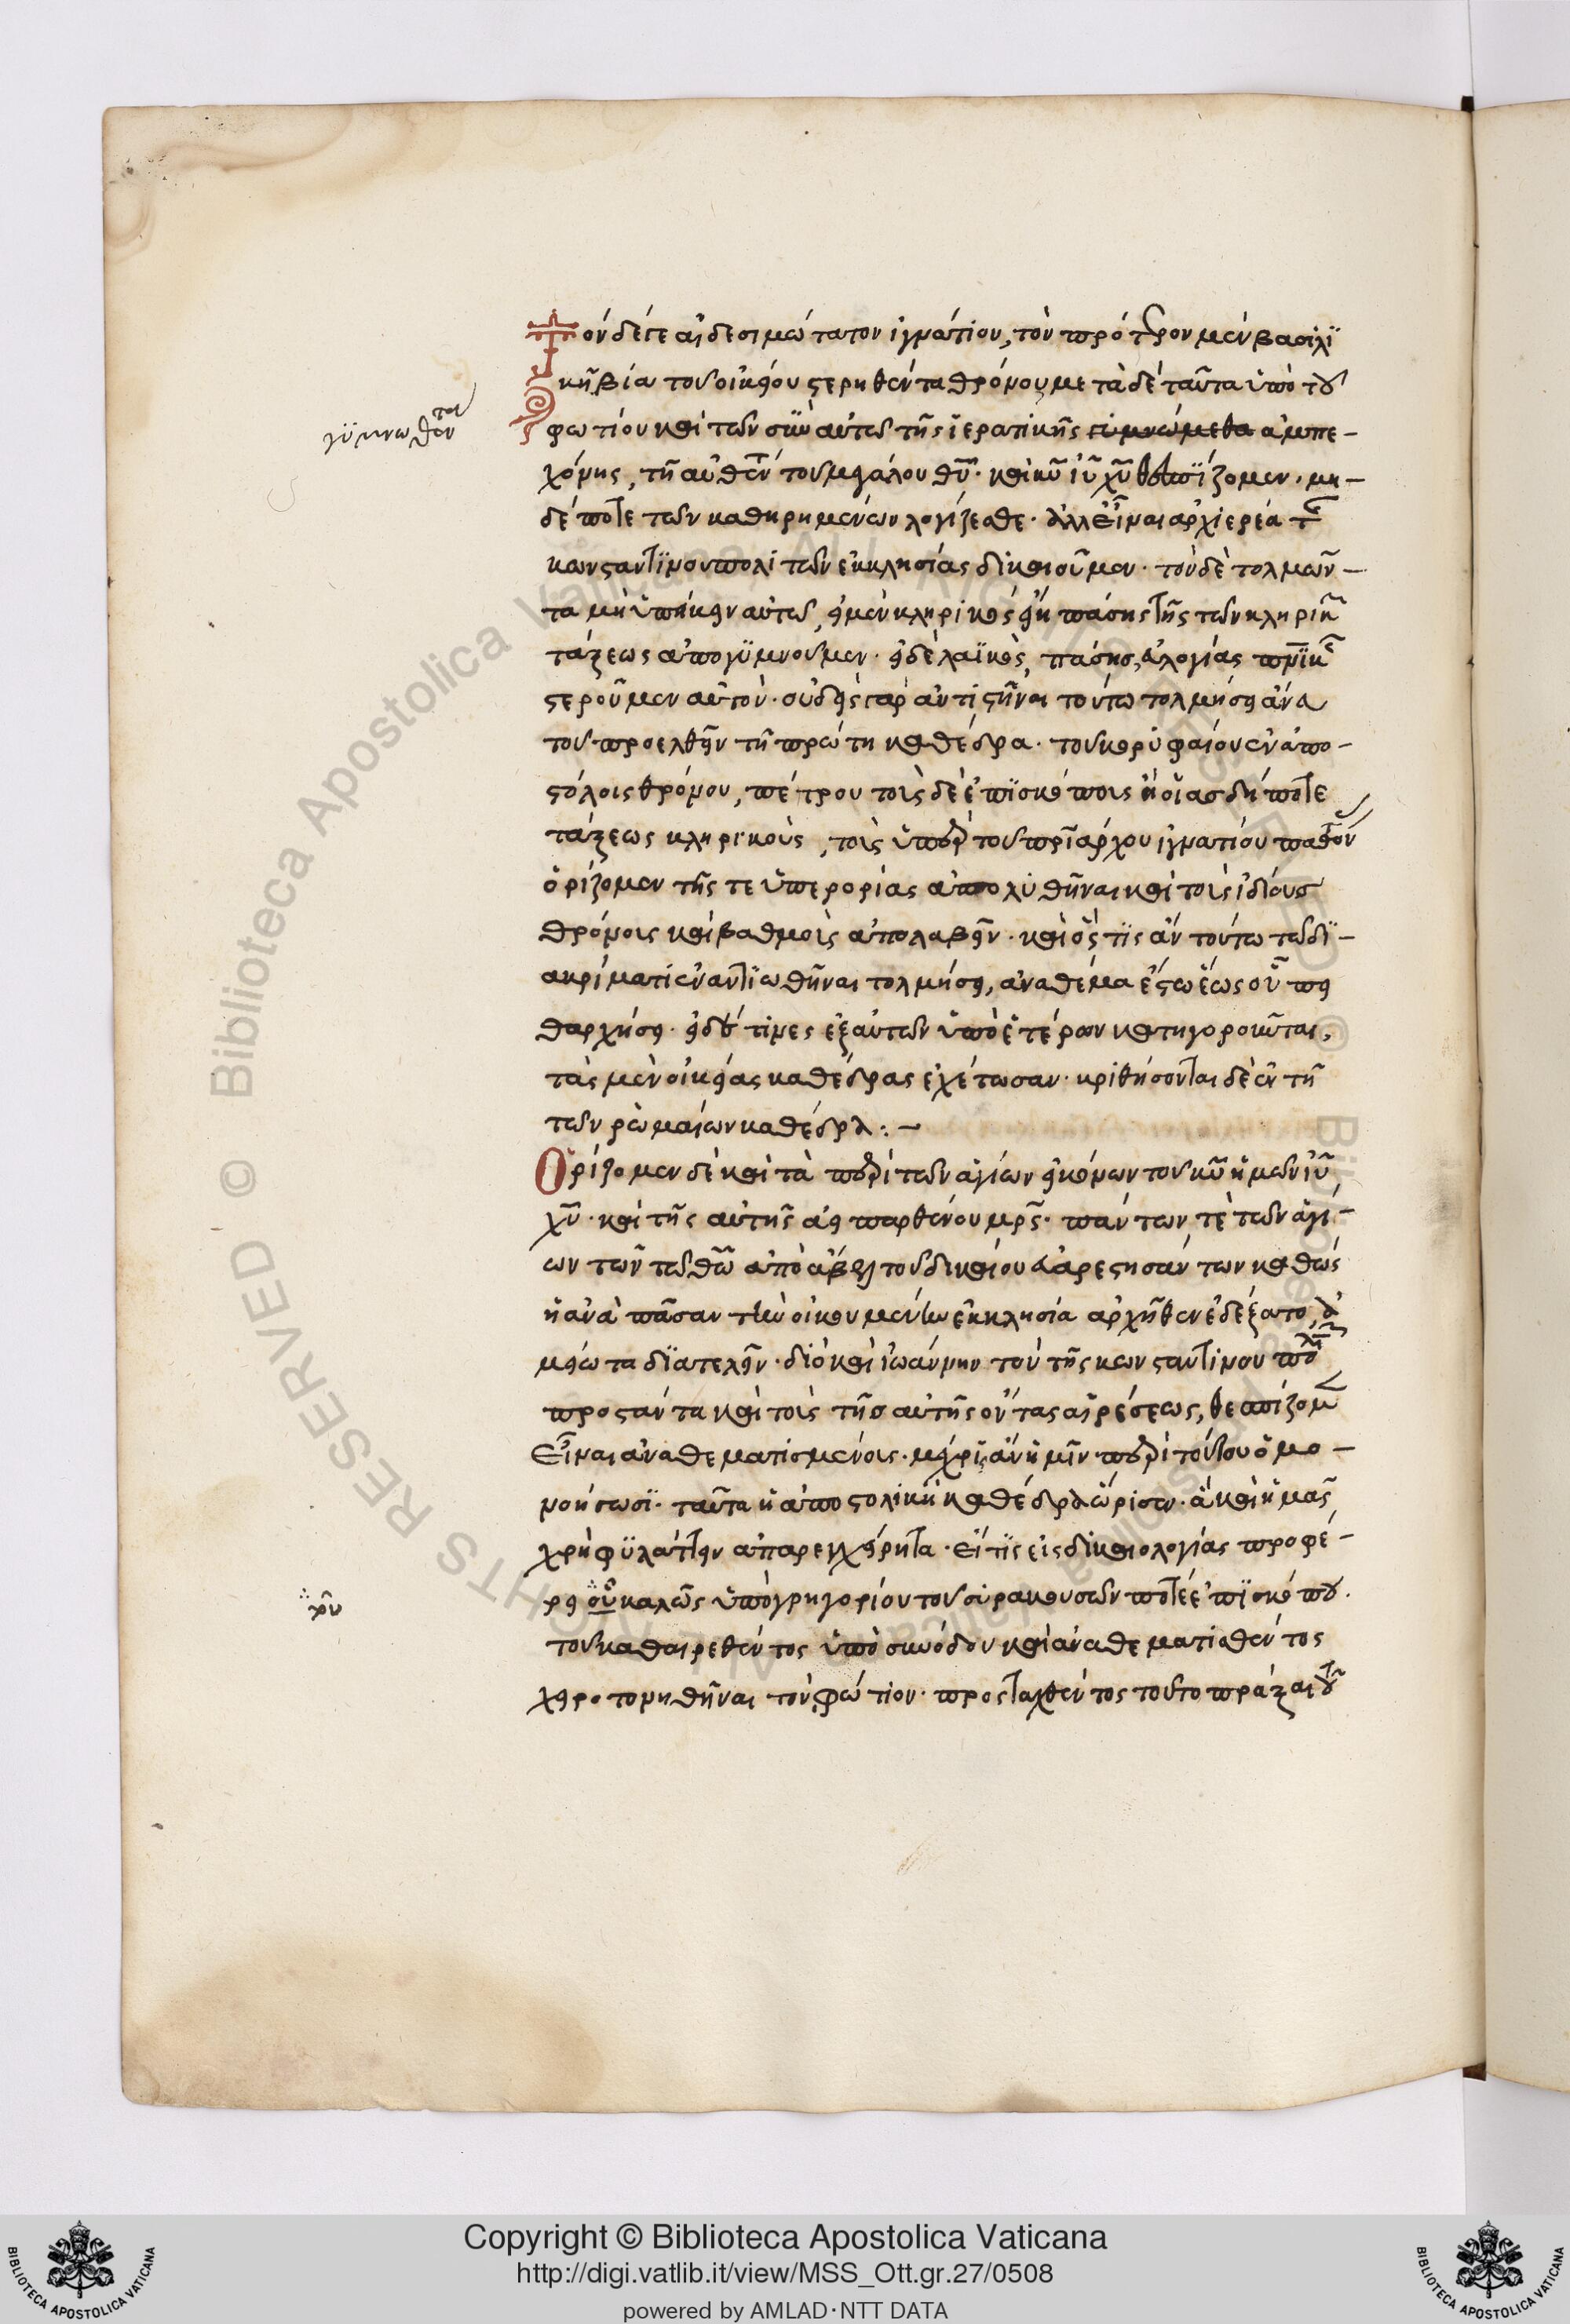 Τὸν δέ γε αἰδεσιμώτατον ἰγνάτιον, τὸν πρότερον μὲν βασιλϊ
κῆ βία τοῦ οἰκείου στερηθέντα θρόνου μετὰ δέ ταῦτα ὑπὸ τοῦ
γϋμνωθέντα
φωτίου καὶ τῶν σὺν αὐτῶ τῆς ἱερατικῆς ἀμπε-
χόνης, τῆ αὐθεντ τοῦ μεγάλου θῦ· καὶ κῦ ἰῦ χῦ θεσπΐζομεν· μη-
δέ ποτε τῶν καθηρημένων λογίζεσθε· ἀλλ εἶναι ἀρχιερέα τῆς
κωνσταντϊνουπολιτῶν ἐκκλησίας δικαιοῦμεν· τὸν δὲ τολμῶν-
τα μὴ ὑπείκειν αὐτῶ, εἰ μὲν κληρικός εἴη πάσης τῆς τῶν κληρικ
τάξεως ἀπογϋμνοῦμεν· εἰ δὲ λαϊκὸς, πάσης εὐλογίας πνϊκ
στεροῦμεν αὐτὸν· οὐδεὶς γαρ ἀντιστῆναι τούτω τολμήσει ἄνευ
τοῦ προελθεῖν τῆ πρώτη καθέδρα· τοῦ κορυφαίου ἐν ἀπο-
στόλοις θρόνου, πέτρου τοὺς δὲ ἐπϊσκόπους ἢ οἵας δήποτε
τάξεως κληρικούς, τοὺς ὑπὲρ τοῦ πρϊάρχου ἰγνατίου παθόντ
ὁρίζομεν τῆς τε ὑπερορίας ἀπολυθῆναι καὶ τοὺς ἰδίους
θρόνους καὶ βαθμοὺς ἀπολαβεῖν· καὶ ὅς τϊς ἀν τούτω τῶ δϊ-
ακρίματι ἐναντϊωθῆναι τολμήσει, ἀναθέμα ἔστω ἕως οὗ πει
θαρχήσει· εἰ δέ τινες ἐξ αὐτῶν ὑπὸ ἑτέρων κατηγοροῦνται,
τὰς μὲν οἰκείας καθέδρας ἐχέτωσαν· κριθήσονται δὲ ἐν τῆ
τῶν ρωμαίων καθέδρα:-
Ὁρίζομεν δὲ καὶ τὰ περὶ τῶν ἁγίων εἰκόνων τοῦ κῦ ἡμῶν ἰῦ
χῦ· καὶ τῆς αὐτῆς ἀεὶ παρθένου μρς· πάντων τὲ τῶν ἁγί-
ων τῶν τῶ θῶ ἀπὸ ἄβελ τοῦ δικαίου εὐαρεστησάντων καθὼς
ἡ ἀνὰ πᾶσαν τὴν οἰκουμένην ἐκκλησία ἀρχῆθεν ἐδέξατο, ἀ
μείωτα δϊατελεῖν· διὸ καὶ ἰωάννην τὸν τῆς κωνσταντίνου πόλ
προστάντα καὶ τοὺς τῆς αὐτῆς ὄντας αἱρέσεως, θεσπίζομεν
εἶναι ἀναθεματισμένους· μέχρϊς ἂν ἡμῖν περὶ τούτου ὁμο-
νοήσωσϊ· ταῦτα ἡ ἀποστολικὴ καθέδρα ὥρισεν· ἃ καὶ ἡμᾶς
χρὴ φϋλάττειν ἀπαρεγχείρητα· εἴ τϊς εἰς δικαιολογίας προφέ-
χρῦ
ρει οὐ καλῶς ὑπὸ γρηγορίου τοῦ συρακουσῶν ποτέ ἐπϊσκόπου·
τοῦ καθαιρεθέντος ὑπὸ συνόδου καὶ ἀναθεματισθέντος
χειροτονηθῆναι τὸν φώτιον· προσταχθέντος τοῦτο πρᾶξαι